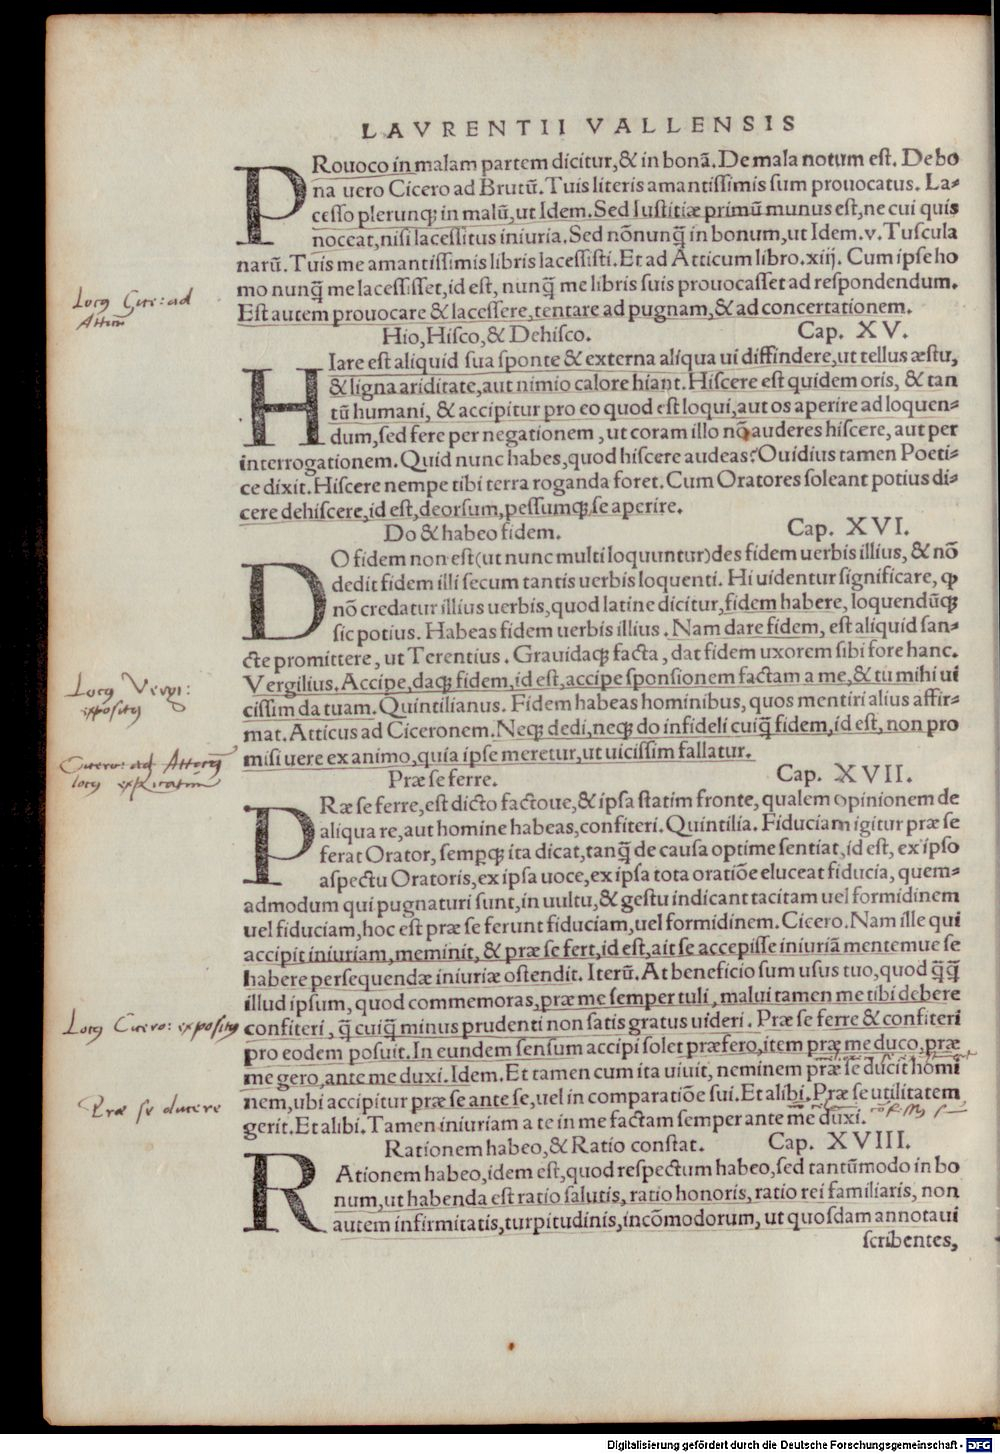 LAVRENTII VALLENSIS
PRouoco in malam partem dicitur,& in bonā. De mala notum est. De bo
na uero Cicero ad Brutū. Tuis literis amantissimis sum prouocatus. La⸗
cesso plerunq; in malū,ut Idem. Sed Iustitiæ primū munus est,ne cui quis
noceat,nisi lacessitus iniuria. Sed nōnunq̄ in bonum,ut Idem.v. Tuscula
narū. Tuis me amantissimis libris lacessisti. Et ad Atticum libro.xiij. Cum ipse ho
mo nunq̄ me lacessisset,id est, nunq̄ me libris suis prouocasset ad respondendum.
Locꝰ Cice: ad
Atticū
Est autem prouocare & lacessere,tentare ad pugnam,& ad concertationem.
Hio,Hisco,& Dehisco. Cap. XV.
HIare est aliquid sua sponte & externa aliqua ui diffindere,ut tellus æstu,
& ligna ariditate,aut nimio calore hiant. Hiscere est quidem oris, & tan
tū humani, & accipitur pro eo quod est loqui,aut os aperire ad loquen⸗
dum,sed fere per negationem , ut coram illo nō auderes hiscere, aut per
interrogationem. Quid nunc habes,quod hiscere audeas? Ouidius tamen Poeti⸗
ce dixit. Hiscere nempe tibi terra roganda foret. Cum Oratores soleant potius di⸗
cere dehiscere,id est,deorsum,pessumq; se aperire.
Do & habeo fidem. Cap. XVI.
DO fidem non est(ut nunc multi loquuntur)des fidem uerbis illius, & nō
dedit fidem illi secum tantis uerbis loquenti. Hi uidentur significare, ꝙ
nō credatur illius uerbis,quod latine dicitur,fidem habere, loquendūq;
sic potius. Habeas fidem uerbis illius . Nam dare fidem, est aliquid san⸗
cte promittere, ut Terentius . Grauidaq; facta, dat fidem uxorem sibi fore hanc.
Locꝰ Vergi:
expositꝰ
Vergilius. Accipe,daq; fidem,id est,accipe sponsionem factam a me,& tu mihi ui
cissim da tuam. Quintilianus. Fidem habeas hominibus, quos mentiri alius affir⸗
mat. Atticus ad Ciceronem. Neq; dedi,neq; do infideli cuiq̄ fidem, id est, non pro
Cicero: ad Atticū
locꝰ explicatur
misi uere ex animo,quia ipse meretur,ut uicissim fallatur.
Præ se ferre. Cap. XVII.
PRæ se ferre,est dicto factoue,& ipsa statim fronte, qualem opinionem de
aliqua re,aut homine habeas,confiteri. Quintilia. Fiduciam igitur præ se
ferat Orator, semꝑq; ita dicat,tanq̄ de causa optime sentiat, id est, ex ipso
aspectu Oratoris,ex ipsa uoce,ex ipsa tota oratiōe eluceat fiducia, quem⸗
admodum qui pugnaturi sunt,in uultu,& gestu indicant tacitam uel formidinem
uel fiduciam,hoc est præ se ferunt fiduciam,uel formidinem. Cicero. Nam ille qui
accipit iniuriam,meminit, & præ se fert,id est,ait se accepisse iniuriā mentemue se
habere persequendæ iniuriæ ostendit. Iterū. At beneficio sum usus tuo,quod q̄q̄
illud ipsum, quod commemoras,præ me semper tuli, malui tamen me tibi debere
Locꝰ Cicero: expositꝰ
confiteri, q̄ cuiq̄ minus prudenti non satis gratus uideri. Præ se ferre & confiteri
pro eodem posuit. In eundem sensum accipi solet præfero,item præ me duco,præ
me gero,ante me duxi. Idem. Et tamen cum ita uiuit, neminem præ se ducit homi
Præ se ducere
nem,ubi accipitur præ se ante se,uel in comparatiōe sui. Et alibi. Præ se utilitatem
gerit. Et alibi. Tamen iniuriam a te in me factam semper ante me duxi.
Rationem habeo,& Ratio constat. Cap. XVIII.
RAtionem habeo,idem est,quod respectum habeo,sed tantūmodo in bo
num,ut habenda est ratio salutis, ratio honoris, ratio rei familiaris, non
autem infirmitatis,turpitudinis,incōmodorum, ut quosdam annotaui
scribentes,
Digitalisierung gefördert durch die Deutsche Forschungsgemeinschaft - DFG